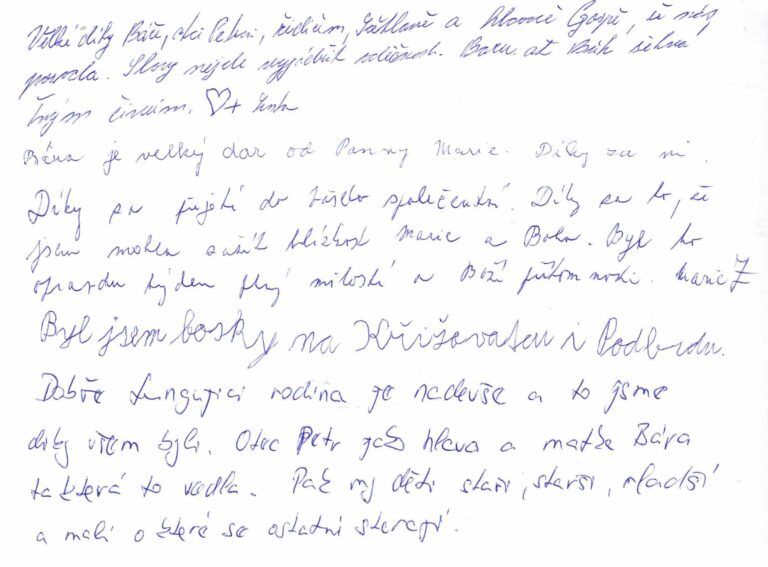 Velké díky Báře, otci Petrovi, řidičům, Světlaně a hlavně Gospě, že nás
pozvala. Slovy nejde vyjádřit vděčnost. Bohu ať Bůh žehná
Tvým činům. ♡+
Bára je velký dar od Panny Marie. Díky za ni.
Díky za přijetí do Vašeho společenství. Díky za to, že
jsem mohla zažít blízkost Marie a Boha. Byl to
opravdu týden plný milostí a Boží přítomnosti. Marie Ž
Byl jsem bosky na Križovatsu i Podbrdu.
Dobře fungující rodina je nadevše a to jsme
díky všem byli. Otec Petr jako hlava a matka Bára
ta která to vedla. Pak my děti staří, starší, mladší
a malí o které se ostatní starají.